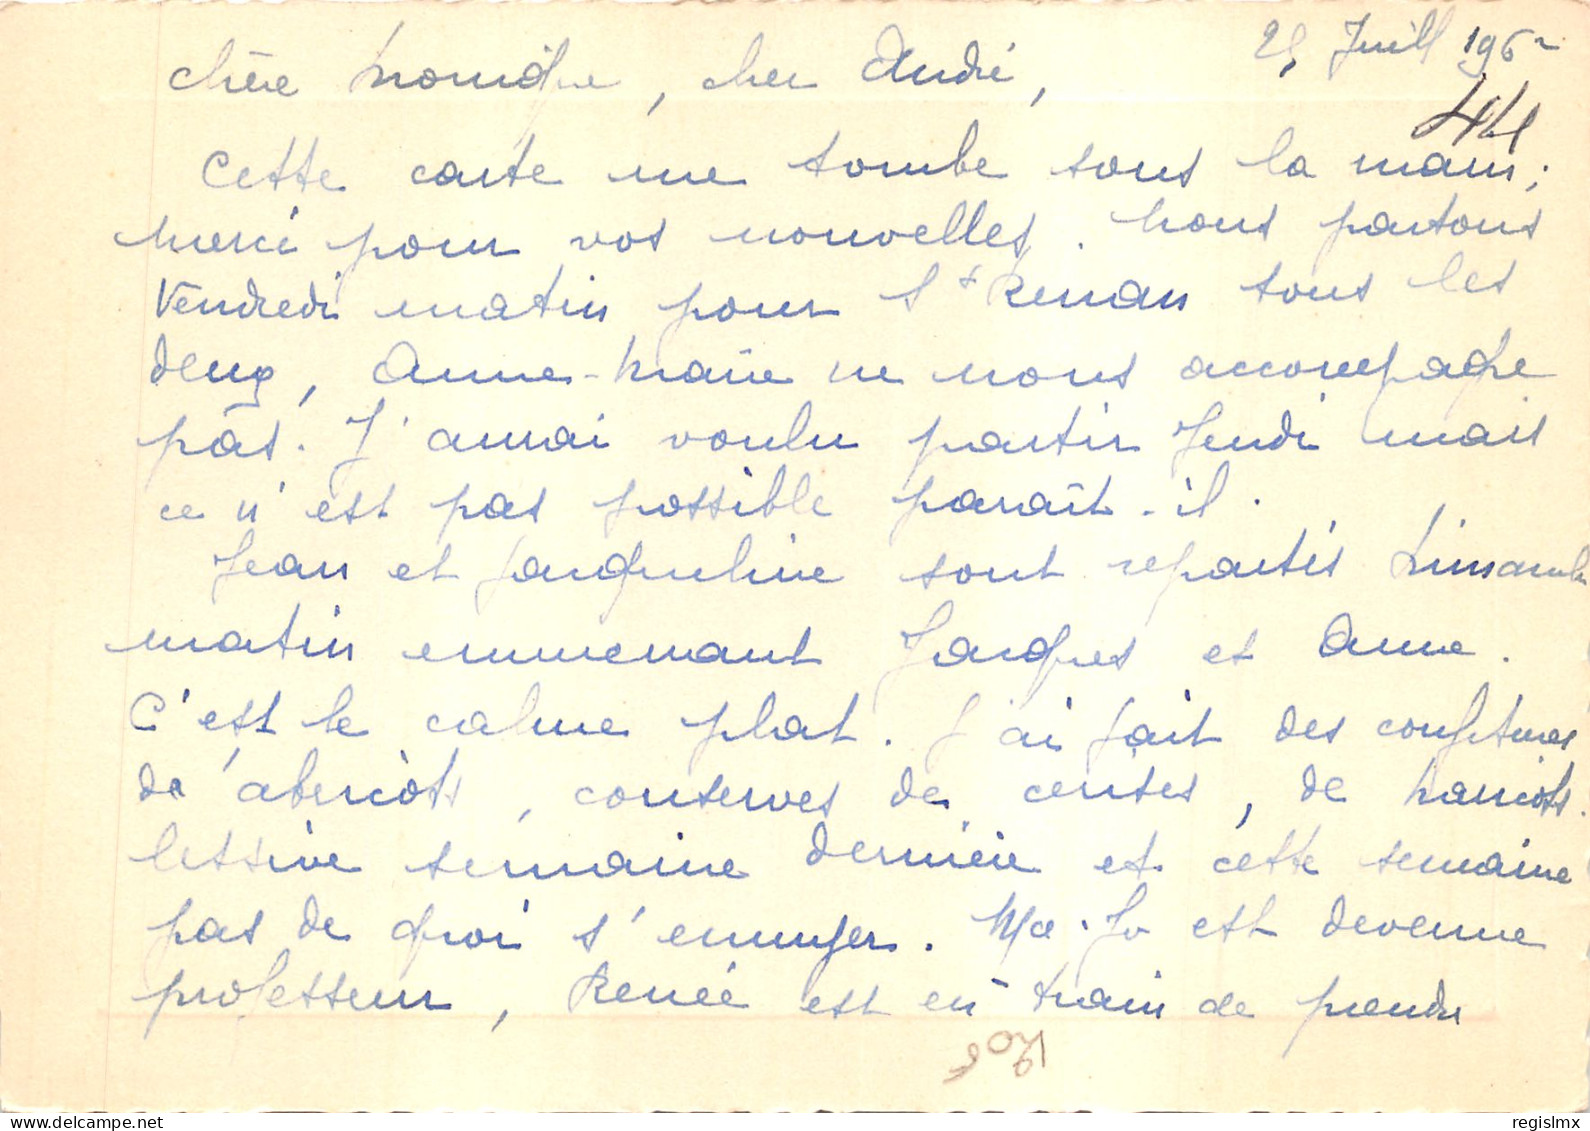 25 Juill 1962
44
Chère Monique, cher André,
Cette carte me tombe sous la main ;
merci pour vos nouvelles. Nous partons
Vendredi matin pour St Renan tous les
deux, Anne-Marie ne nous accompagne
pas. J'aurai voulu partir Jeudi mais
ce n'est pas possible paraît-il.
Jean et Jacqueline sont repartis Dimanche
matin emmenant Jacques et Anne.
C'est le calme plat. J'ai fait des confitures
de d'abricots, conserves de cerises, de haricots.
lessive semaine dernière et cette semaine
pas de quoi s'ennuyer. Me. Jo est devenue
professeur, Renée est en train de prendre
regislmx